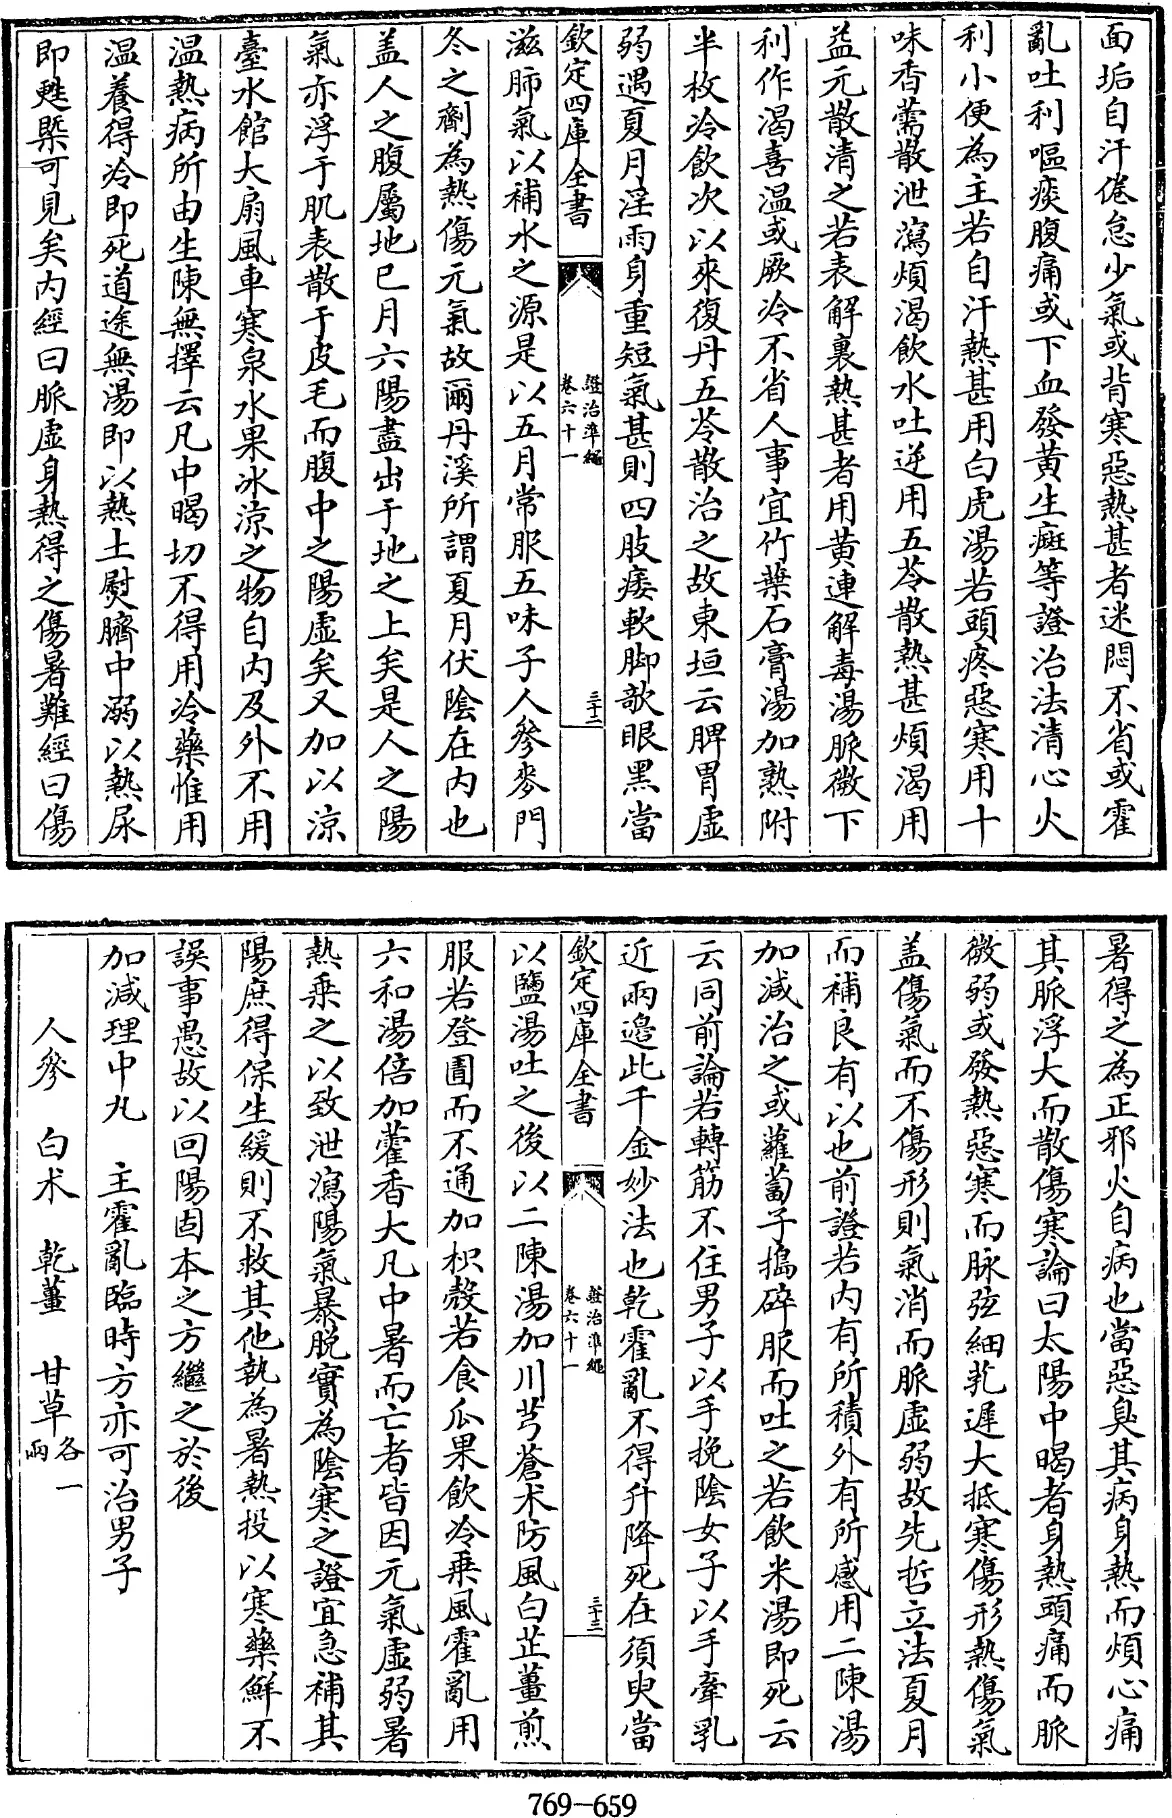 面垢自汗倦怠少氣或背寒惡熱甚者迷悶不省或霍
亂吐利嘔痰腹痛或下血發黄生癍等證治法清心火
利小便為主若自汗熱甚用白虎湯若頭疼惡寒用十
味香薷散泄瀉煩渴飲水吐逆用五苓散熱甚煩渴用
益元散清之若表解裏熱甚者用黄連解毒湯脈微下
利作渴喜温或厥冷不省人事宜竹葉石膏湯加熟附
半枚冷飲次以來復丹五苓散治之故東垣云脾胃虚
弱遇夏月淫雨身重短氣甚則四肢痿軟脚欹眼黑當
欽定四庫全書
證治準繩
卷六十一
三十二
滋肺氣以補水之源是以五月常服五味子人參麥門
冬之劑為熱傷元氣故爾丹溪所謂夏月伏陰在内也
盖人之腹屬地巳月六陽盡出于地之上矣是人之陽
氣亦浮于肌表散于皮毛而腹中之陽虚矣又加以涼
臺水館大扇風車寒泉水果冰涼之物自内及外不用
温熱病所由生陳無擇云凡中暍切不得用冷藥惟用
温養得冷即死道途無湯即以熱土熨臍中溺以熱尿
即甦槩可見矣内經曰脈虚身熱得之傷暑難經曰傷
暑得之為正邪火自病也當惡臭其病身熱而煩心痛
其脈浮大而散傷寒論曰太陽中暍者身熱頭痛而脈
微弱或發熱惡寒而脉弦細芤遲大抵寒傷形熱傷氣
盖傷氣而不傷形則氣消而脈虚弱故先哲立法夏月
而補良有以也前證若内有所積外有所感用二陳湯
加減治之或蘿蔔子搗碎服而吐之若飲米湯即死云
云同前論若轉筋不住男子以手挽陰女子以手牽乳
近兩邉此千金妙法也乾霍亂不得升降死在須臾當
欽定四庫全書
證治準繩
卷六十一
三十三
以鹽湯吐之後以二陳湯加川芎蒼术防風白芷薑煎
服若登圊而不通加枳殼若食瓜果飲冷乗風霍亂用
六和湯倍加藿香大凡中暑而亡者皆因元氣虚弱暑
熱乗之以致泄瀉陽氣暴脱實為陰寒之證宜急補其
陽庶得保生緩則不救其他執為暑熱投以寒藥鮮不
誤事愚故以回陽固本之方繼之於後
加減理中丸　主霍亂臨時方亦可治男子
人參　白术　乾薑　甘草各一兩
769-659